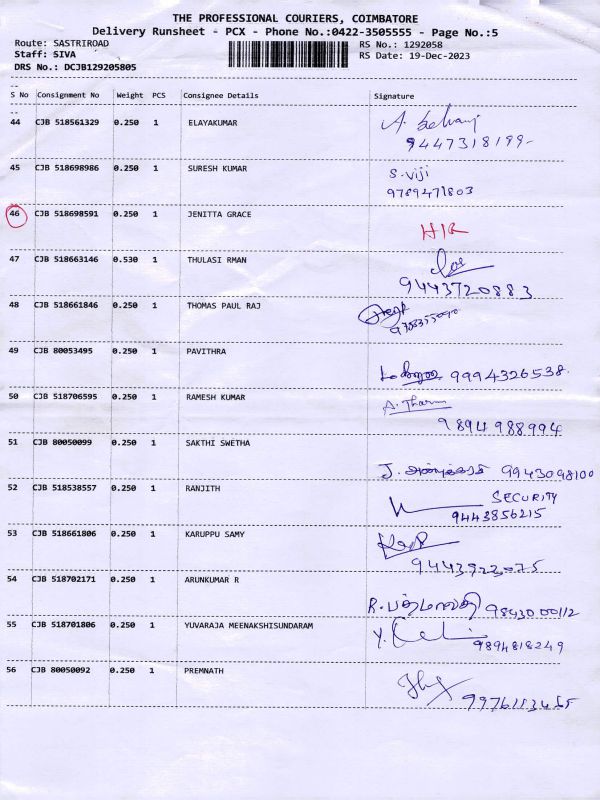 THE PROFESSIONAL COURIERS, COIMBATORE
Delivery Runsheet - PCX - Phone No.:0422-3505555 - Page No.:5
Route: SASTRIROAD RS No.: 1292058
Staff: SIVA RS Date: 19-Dec-2023
DRS No.: DCJB129205805
--
S No Consignment No Weight PCS Consignee Details Signature
--
44 CJB 518561329 0.250 1 ELAYAKUMAR
9447318199-
45 CJB 518698986 0.250 1 SURESH KUMAR S. Viji
9789471803
46 CJB 518698591 0.250 1 JENITTA GRACE
47 CJB 518663146 0.530 1 THULASI RMAN
9443720883
48 CJB 518661846 0.250 1 THOMAS PAUL RAJ
49 CJB 80053495 0.250 1 PAVITHRA
9994326538.
50 CJB 518706595 0.250 1 RAMESH KUMAR
9894988994
51 CJB 80050099 0.250 1 SAKTHI SWETHA
J. 9943098100
52 CJB 518538557 0.250 1 RANJITH SECURITY
9443856215
53 CJB 518661806 0.250 1 KARUPPU SAMY
9443923075
54 CJB 518702171 0.250 1 ARUNKUMAR R
R. பத்மாவதி 9843000112
55 CJB 518701806 0.250 1 YUVARAJA MEENAKSHISUNDARAM
9894818249
56 CJB 80050092 0.250 1 PREMNATH